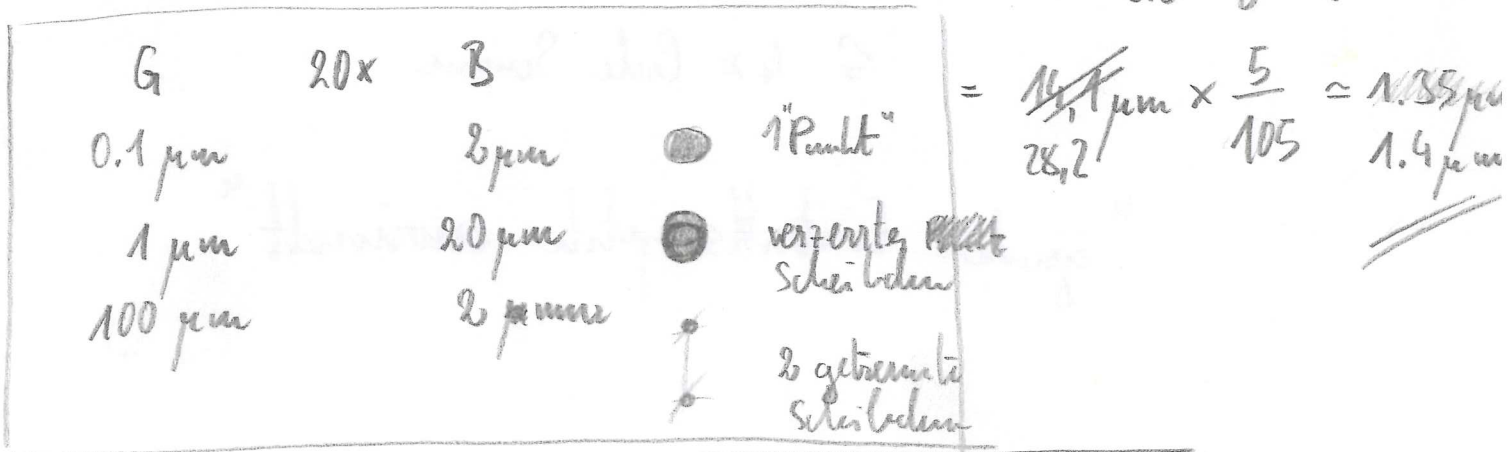 G 20x B
0.1 µm 2 µm 1 "Punkt"
1 µm 20 µm verzerrtes
Scheibchen
100 µm 2 mm
2 getrennte
Scheibchen
= 14,1 µm × 5/105 ≃ 1.35 µm
28,2 1.4 µm